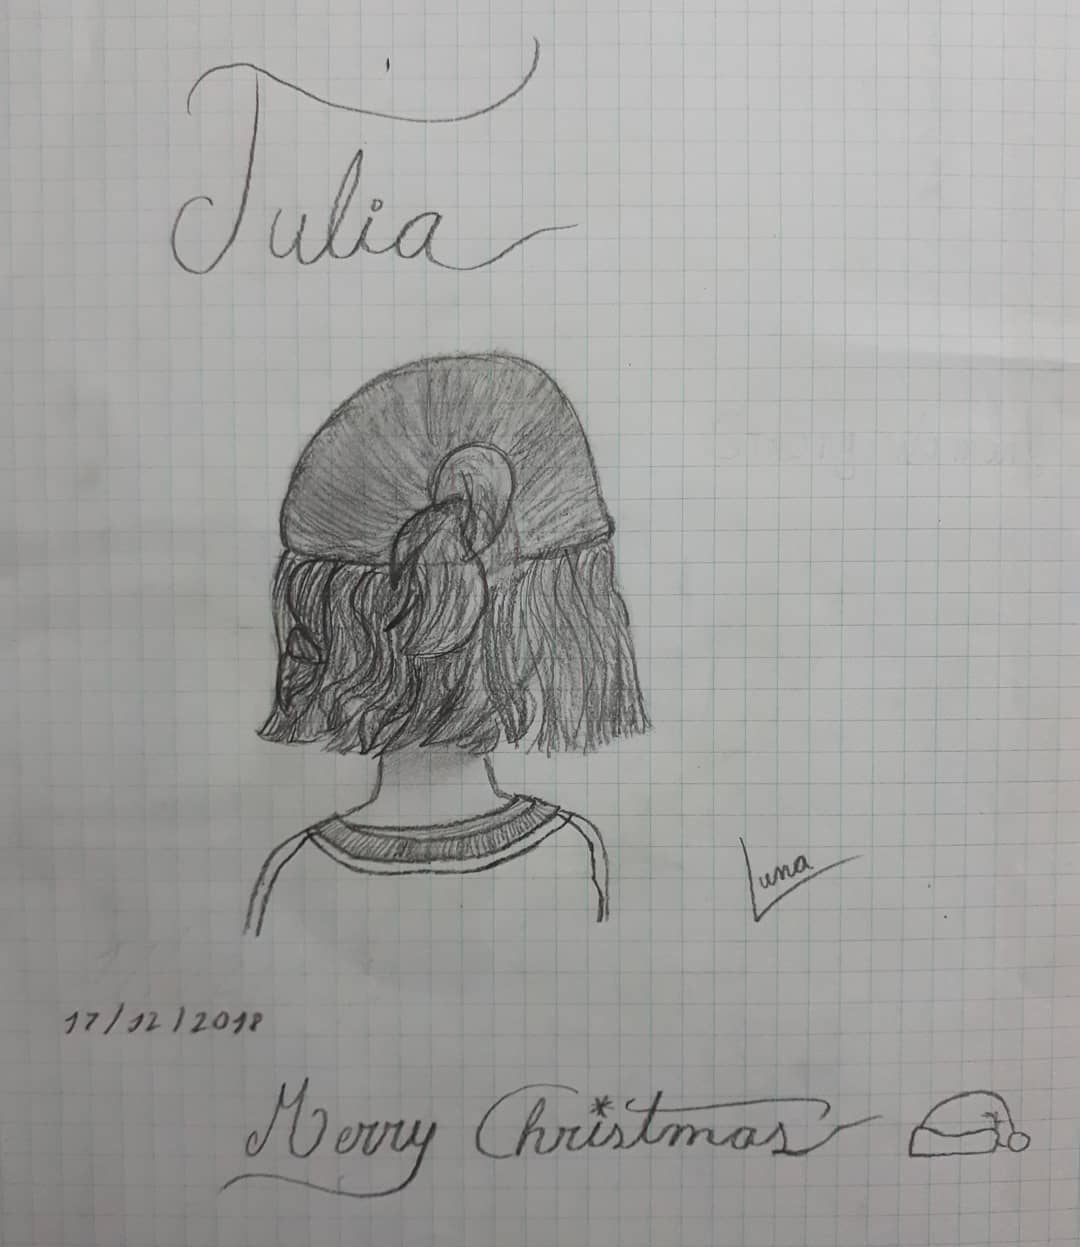 Julia
Luna
17/12/2018
Merry Christmas